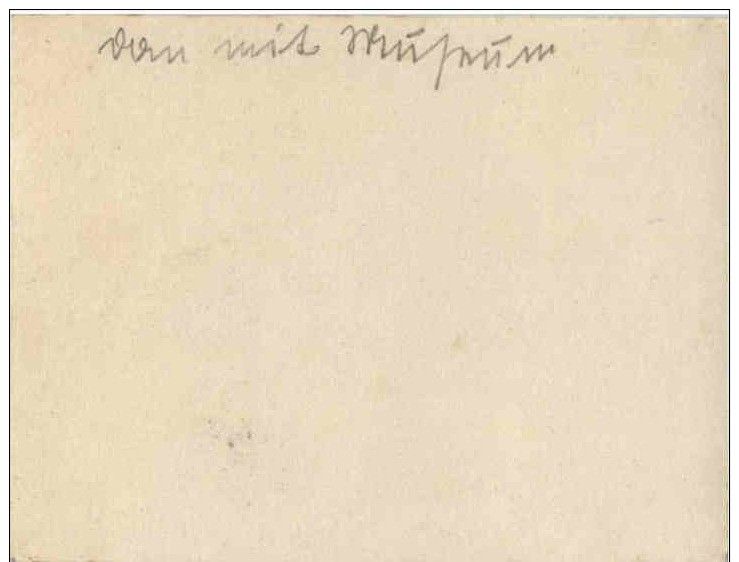 dan mit Museum